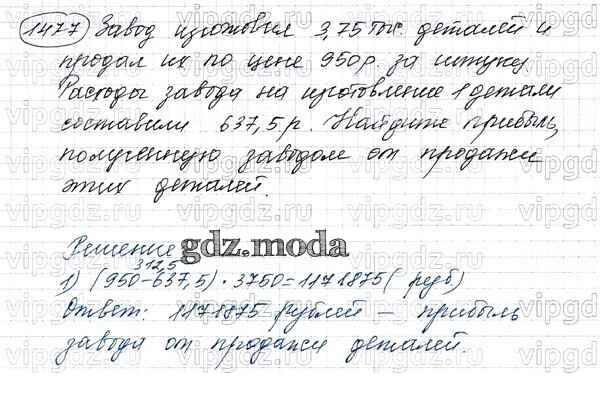 1477 Завод изготовил 3,75 тыс. деталей и
продал их по цене 950 р. за штуку.
Расходы завода на изготовление 1 детали
составили 637,5 р. Найдите прибыль,
полученную заводом от продажи
этих деталей.
Решение
gdz.moda
312,5
1) (950-637,5) · 3750=1171875 (руб)
Ответ: 1171875 рублей – прибыль
завода от продажи деталей.